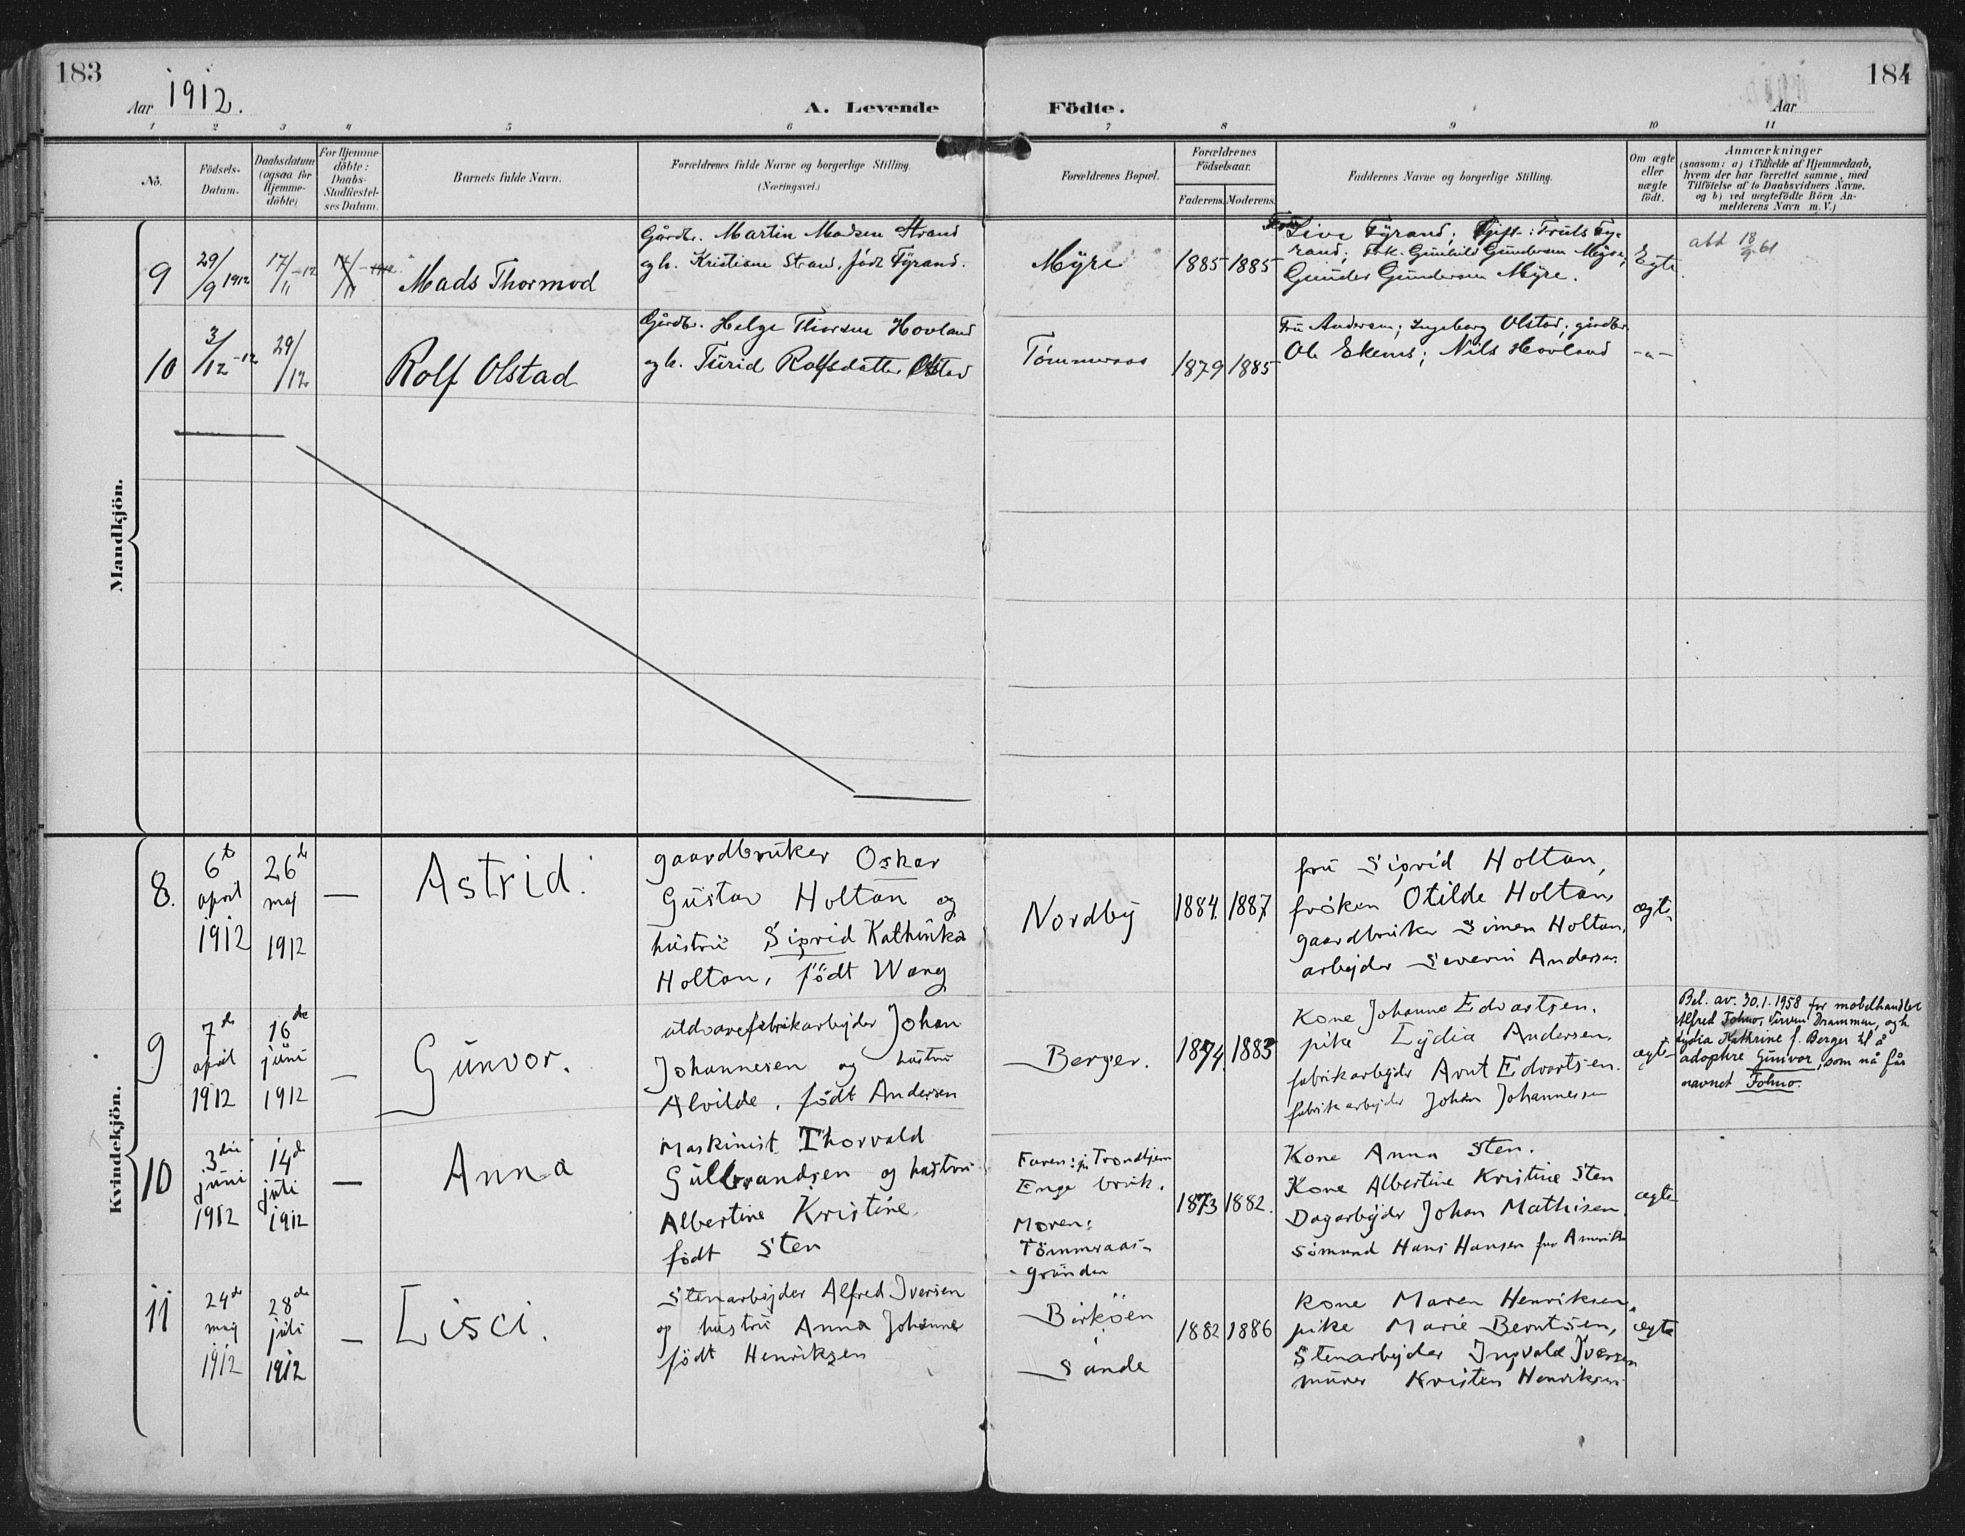 183
Aar 1912.
A. Levende
Födte.
Aar
184
1 2 3 4 5 6 7 8 9 10 11
No.
Födsels-
Datum.
Daabsdatum
(ogsaa for
Hjemme-
döbte)
For Hjemme-
döbte:
Daabs-
Stadfæstel-
ses Datum.
Barnets fulde Navn.
Forældrenes fulde Navne og borgerlige Stilling.
(Næringsvei.)
Forældrenes Bopæl.
Forældrenes
Födselsaar.
Faderens. Moderens.
Faddernes Navne og borgerlige Stilling.
Om ægte
eller
uægte
født.
Anmærkninger
(saasom: a) i Tilfælde af Hjemmedaab,
hvem der har forrettet samme, med
Tilföielse af to Daabsvidners Navne,
og b) ved uægtefödte Börn An-
melderens Navn m. V.)
Mandkjön.
9
29/9 1912
17/11 -12
Mads Thormod
Gårdbr. Martin Madsen Strand
og h. Kristiane Strand, født Fyrand.
Myre
1885 1885
Live Fyrand; Gift: Truls Fy-
rand; Frk. Gunhild Gundersen Myre,
Gunder Gundersen Myre.
Egte
att 18/9 61
10
3/12 -12
29/12
Rolf Olstad
Gårdbr. Helge Thorsen Hovland
og h. Turid Rolfsdatter Olstad
Tømmeraas
1879 1885
Fru Andersen; Ingeborg Olstad; gårdbr.
Ole Ekenes; Nils Hovland
-"-
Kvindekjön.
8.
6te
april
1912
26de
maj
1912
—
Astrid.
gaardbruker Oskar
Gustav Holtan og
hustru Sigrid Kathinka
Holtan, født Wang
Nordby
1884. 1887
fru Sigrid Holtan,
frøken Otilde Holtan
gaardbruker Simen Holtan,
arbejder Severin Andersen
ægte
9
7de
april
1912
16de
juni
1912
—
Gunvor.
uldvarefabrikarbejder Johan
Johannesen og hustru
Alvilde, født Andersen
Berger.
1874. 1883
Kone Johanne Edvartsen.
pike Lydia Andersen.
fabrikarbejder Arnt Edvartsen.
fabrikarbejder Johan Johannessen
ægte
Bel. av. 30.1.1958 for møbelhandler
Alfred Tohno, Drammen, og h.
Lydia Kathrine f. Berger til å
adoptere Gunvor, som nå får
navnet Tohno.
10
3die
juni
1912
14de
juli
1912
—
Anna
Maskinist Thorvald
Gulbrandsen og hustru
Albertine Kristine
født Sten
Faren: pr Trondhjem
Enge bruk.
Moren:
Tømmeraas-
grunden
1873 1882.
Kone Anna Sten.
Kone Albertine Kristine Sten
Dagarbejder Johan Mathisen
Sømand Hans Hansen fra Amerika
ægte
11
24de
maj
1912
28de
juli
1912
—
Lisci.
Stenarbejder Alfred Iversen
og hustru Anna Johanne
født Henriksen
Birköen
i
Sande
1882 1886
Kone Maren Henriksen,
pike Marie Berntsen,
Stenarbejder Ingvald Iversen
murer Kristen Henriksen
ægte